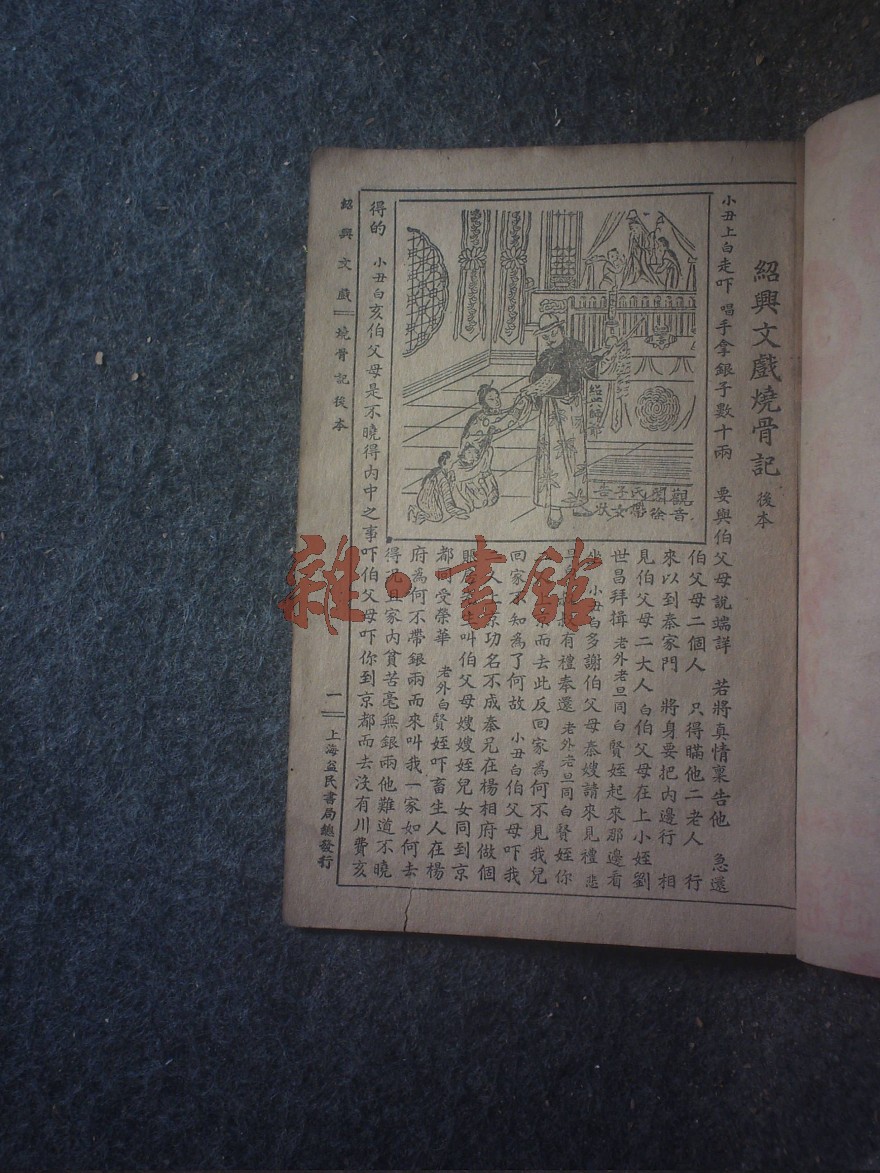 紹興文戲燒骨記 後本
小丑上白走吓 唱手拿銀子數十兩 要與伯父母說端詳 若將真情稟告他 急還
伯父母二個人 只得瞞他二老人 行
來以到秦家門 將身要把內邊行 相
見伯父母二大人 白伯父母在上小姪劉
世昌拜揖 老外老旦同白賢姪起來那邊看
坐 小丑白多謝伯父母秦嫂請來見禮 悲
有禮奉還 老外老旦同白賢姪你
而去此反回家為何不見我兒
回家不知為了何故 小丑白伯父母吓我
人上京功名不成秦兄在楊相府做個
生叫伯父母嫂嫂姪兒女同到京
都 受榮華 老外白賢姪吓畜生人在楊
府為何不帶銀兩而來叫我一家如何去
得況且家內貧苦毫無銀兩他難道不曉
得的 小丑白亥伯父母是不曉得內中之事吓伯父母吓你到京都而去沒有川費亥
紹興師爺
觀音
閣徐
氏帶
子女
告狀
紹興文戲 燒骨記後本
二 上海益民書局總發行
雜·書館